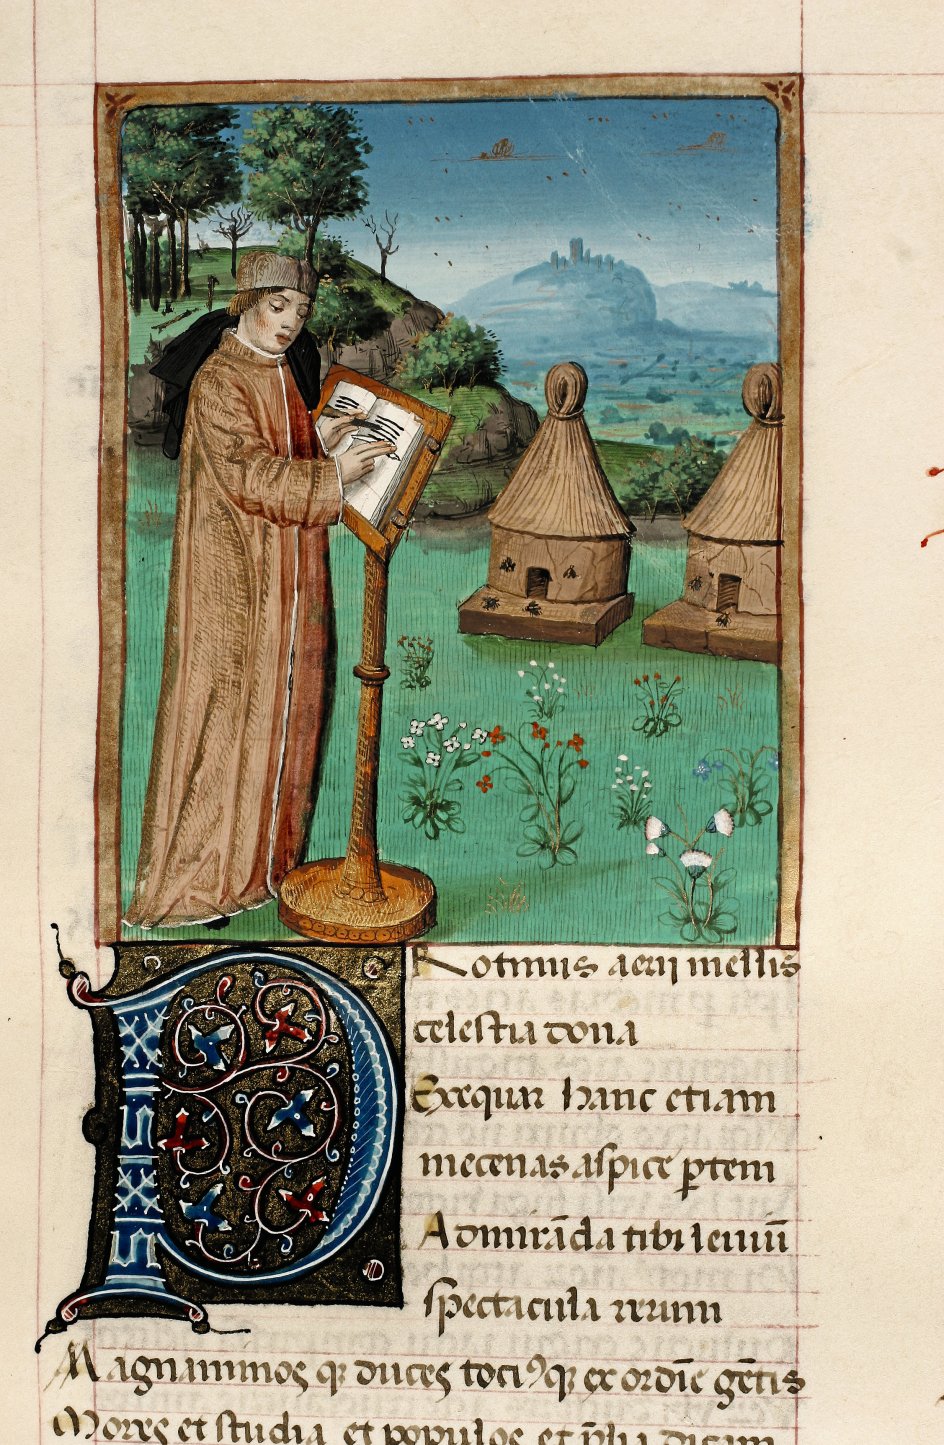 PRotinus aerij mellis
celestia dona
Exequar hanc etiam
mecenas aspice ꝑtem
Admirāda tibi leuiū
spectacula rerum
Magnanimos qꝫ duces tociꝰqꝫ ex ordīe gētis
Mores et studia et populos et p̄lia dicam